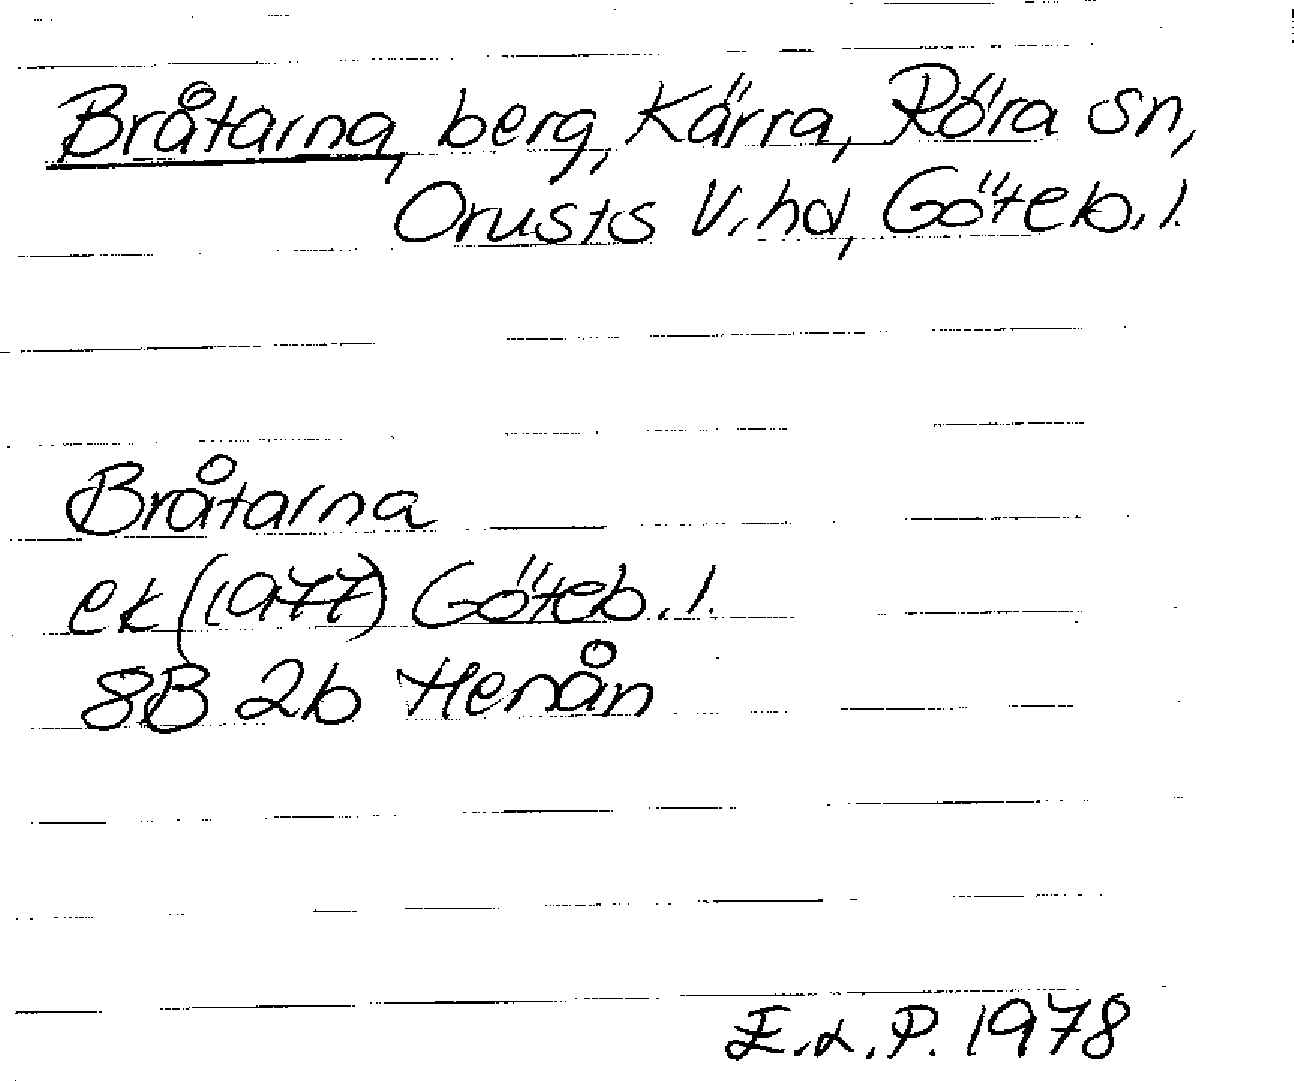 Bråtarna, berg, Kärra, Röra sn,
Orusts V. hd, Göteb. l.
Bråtarna
ek (1977) Göteb. l.
8B 2b Henån
E.L.P. 1978